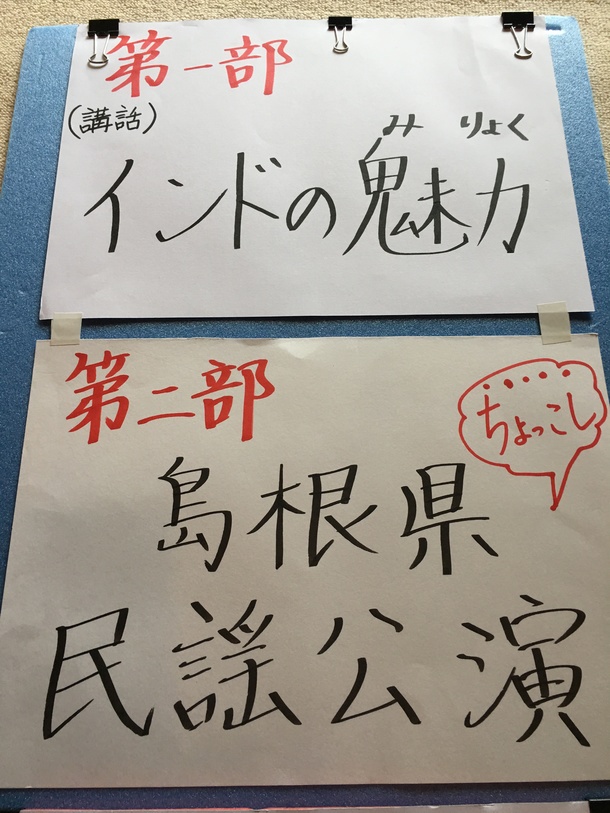 第一部
(講話)
みりょく
インドの魅力
第二部
ちょっこし
島根県
民謡公演